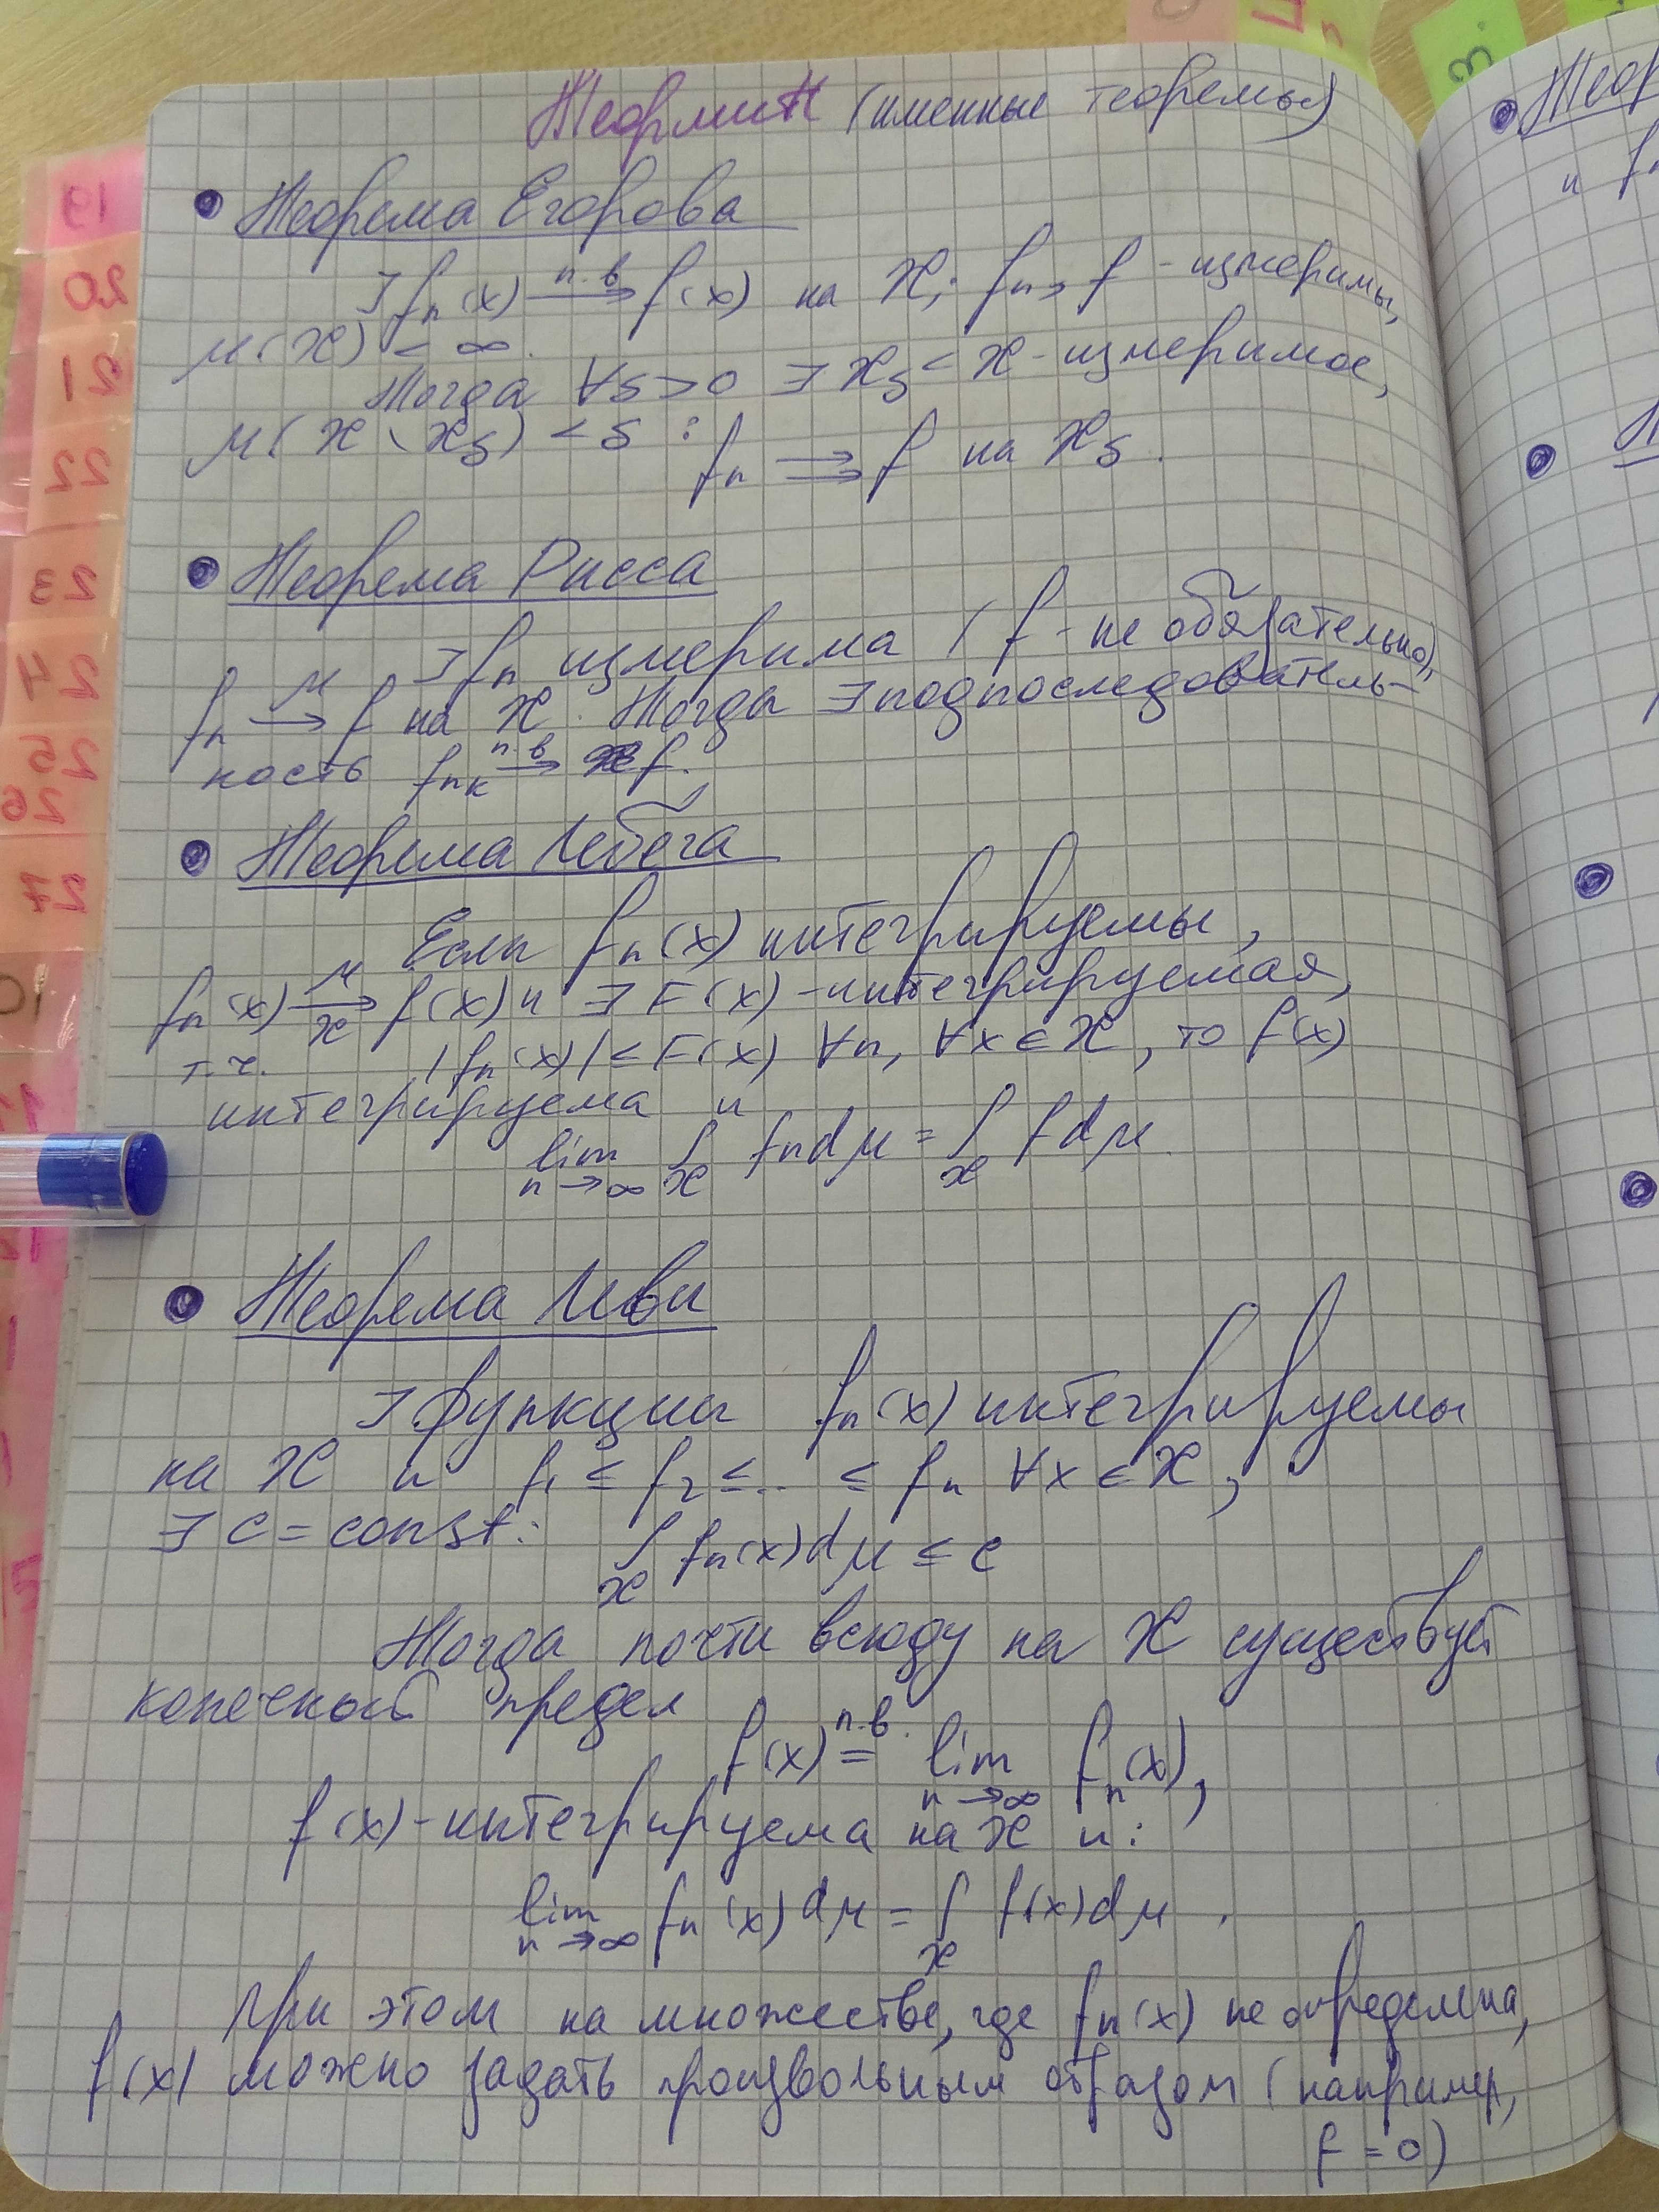 Теормин (именные теоремы)
• Теорема Егорова
∃ fₙ(x) —п.в→ f(x) на X, fₙ, f - измеримы,
μ(X) < ∞.
Тогда ∀δ>0 ∃ X_δ ⊂ X - измеримое,
μ(X \ X_δ) < δ :
fₙ ⇉ f на X_δ.
• Теорема Рисса
∃ fₙ измерима (f - не обязательно),
fₙ —μ→ f на X. Тогда ∃ подпоследователь-
ность fₙₖ —п.в→ f.
• Теорема Лебега
Если fₙ(x) интегрируемы,
fₙ(x) —μ→ f(x) и ∃ F(x) - интегрируемая,
X
т.ч. |fₙ(x)| ≤ F(x) ∀n, ∀x ∈ X, то f(x)
интегрируема и
lim ∫ fₙdμ = ∫ fdμ.
n→∞ X X
• Теорема Леви
∃ функции fₙ(x) интегрируемы
на X и f₁ ≤ f₂ ≤ .. ≤ fₙ ∀x ∈ X,
∃ c = const: ∫ fₙ(x)dμ ≤ c
X
Тогда почти всюду на X существует
конечный предел
f(x) =п.в. lim fₙ(x),
n→∞
f(x) - интегрируема на X и:
lim fₙ(x)dμ = ∫ f(x)dμ.
n→∞ X
При этом на множестве, где fₙ(x) не определена,
f(x) можно задать произвольным образом (например,
f = 0)
19
20
21
22
23
24
25
26
27
10
3.
• Теор
и f